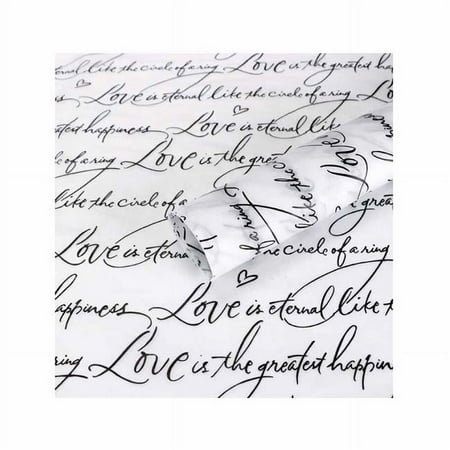 eternal like the circle of a ring Love is the greatest happiness
Love is eternal like the circle of a ring
greatest happiness Love is eternal lik
circle of a ring Love is the grea
like the circle of
Love is eterna the circle of a ring
happiness Love is eternal like th
ring Love is the greatest happin
a ring
like the c
Love